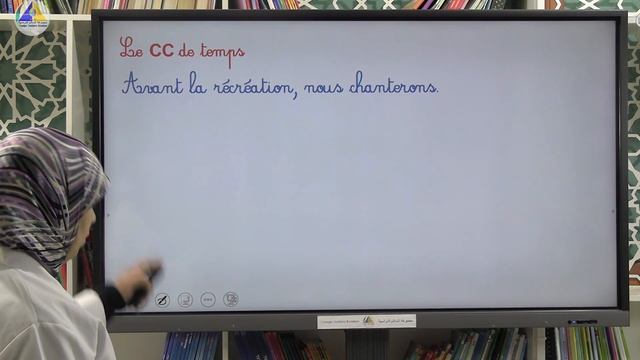 Le CC de temps
Avant la récréation, nous chanterons.